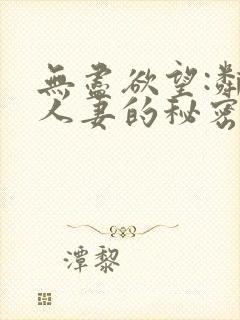 無盡欲望:鄰
人妻的秘密
潭黎